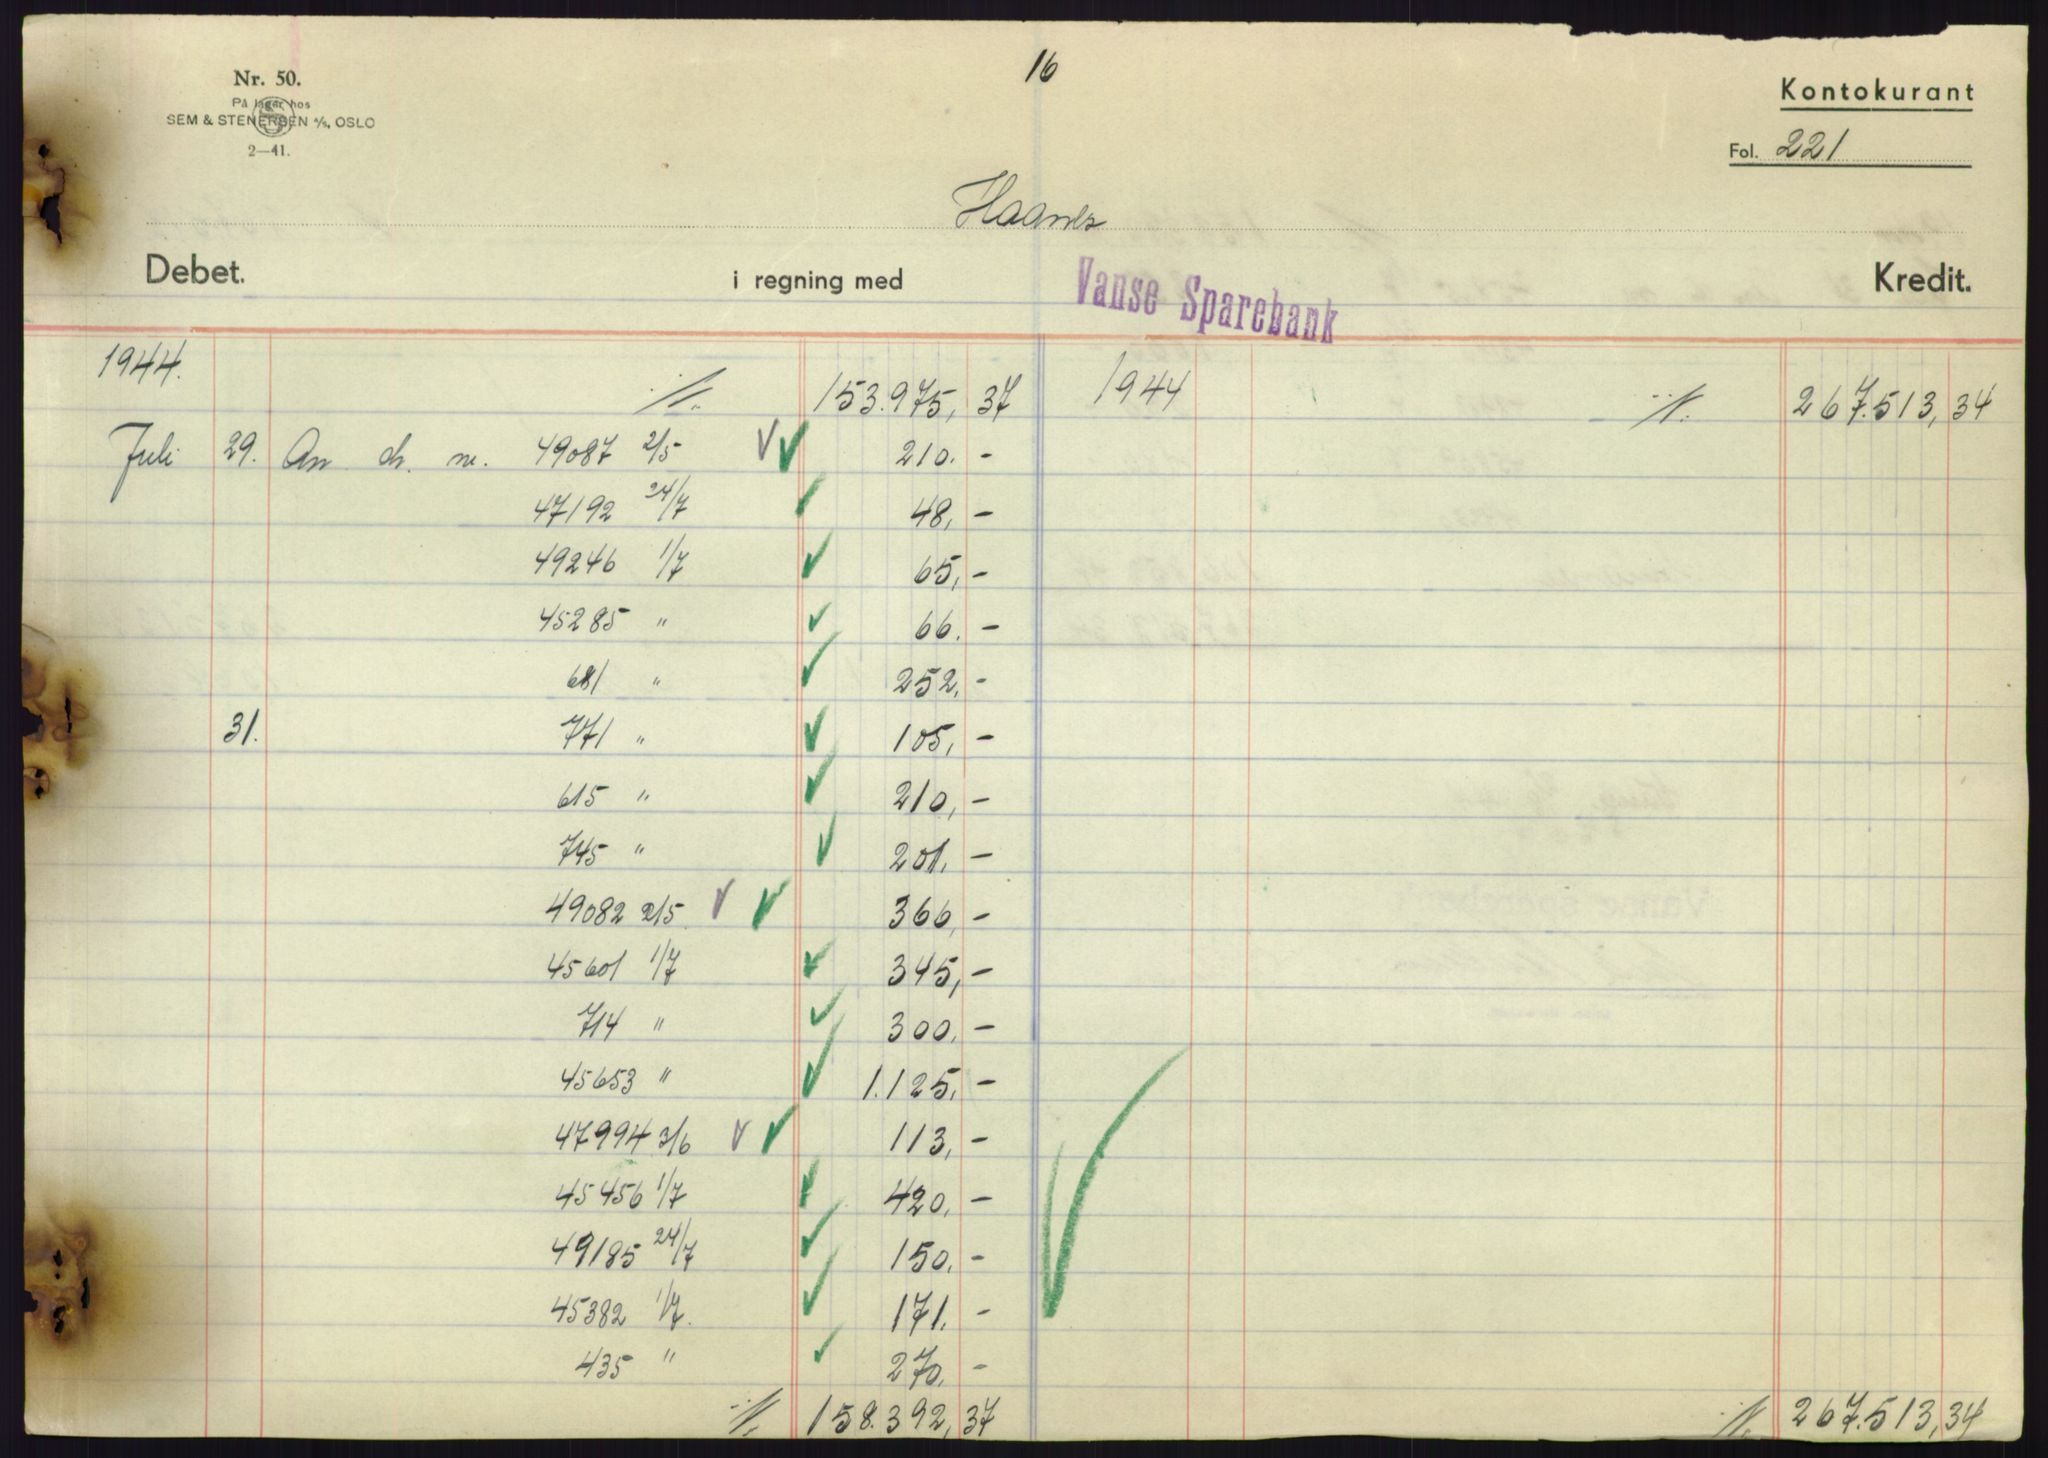 16
Nr. 50.
På lager hos
SEM & STENERSEN A/S, OSLO
2—41.
Kontokurant
Fol. 221
Haanes
Debet. i regning med Vanse Sparebank Kredit.
1944. 153.975,37 1944 267.513,34
Juli 29. An ch. nr. 49087 2/5 210.-
47192 24/7 48,-
49246 1/7 65,-
45285 " 66.-
681 " 252,-
31. 771 " 105,-
615 " 210,-
745 " 201.-
49082 2/5 366,-
45601 1/7 345,-
714 " 300.-
45653 " 1.125,-
47994 3/6 113,-
45456 1/7 420,-
49185 24/7 150,-
45382 1/7. 171.-
435 " 270,-
158.392,37 267.513,34